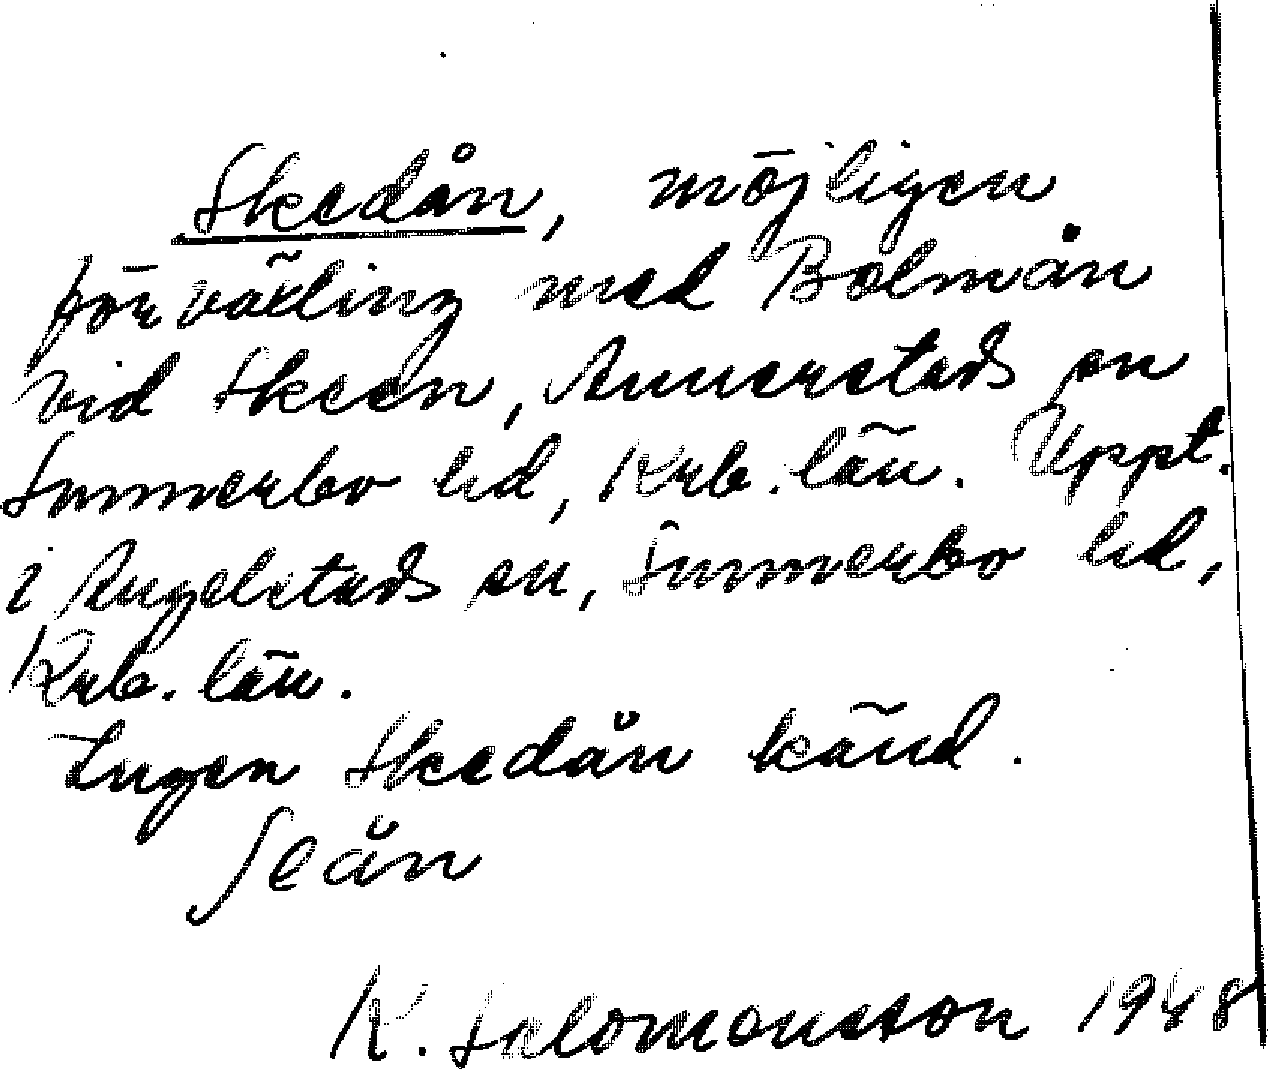 Skedån, möjligen
förväxling med Bolmån
vid Skeen, Annerstads sn
Sunnerbo hd, Krb. län. Uppt.
i Angelstads sn, Sunnerbo hd,
Krb. län.
Ingen Skedån känd.
Seån
K. Salomonsson 1948